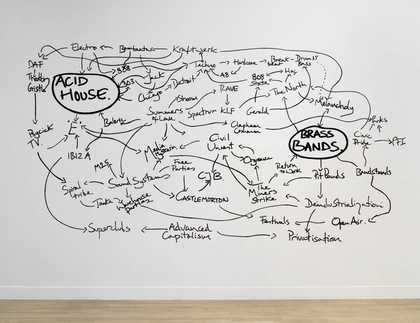 Electro
Bambaataa
Kraftwerk
DAF
Throbbing
Gristle
ACID
HOUSE.
808
303
Jack
Chicago
Detroit
Techno
Hardcore
Break-
beat
Drum &
Bass
A8
808
State
Hex
RAVE
The North
Melancholy
Stream
Spectrum
KLF
Gerald
Summers
of Love
Clapham
Common
Psychick
TV
E
Balery
1812 A
Media
Civil
Unrest
BRASS
BANDS.
Parks
Civic
Pride
PFI
M25
Free
Parties
Orgreave
Return
to Work
Pit Bands
Bandstands
Spiral
tribe
Sound Systems
CJB
CASTLEMORTON
The
Miners
Strike
Tanks
warehouse
parties
Deindustrialization
Festivals
Open Air.
Superclubs
Advanced
Capitalism
Privatisation